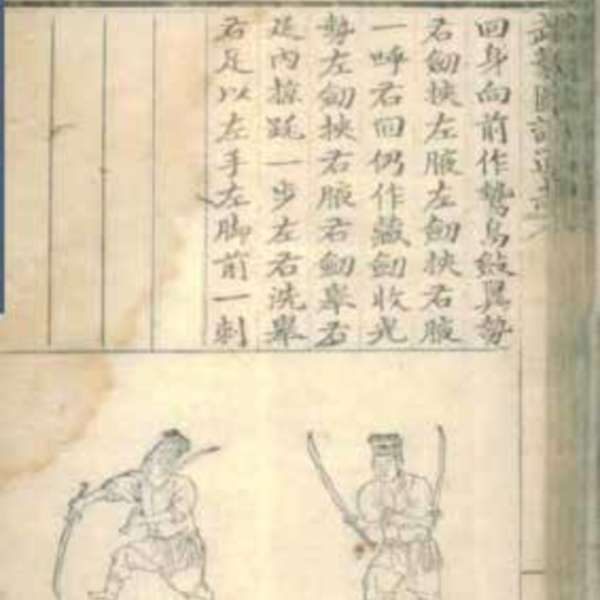 武藝圖譜通志
回身向前作鷙鳥斂翼勢
右劒挾左腋左劒挾右腋
一呼右回仍作藏劒收光
勢左劒挾右腋右劒擧右
足內掠跳一步左右洗擧
右足以左手左脚前一刺